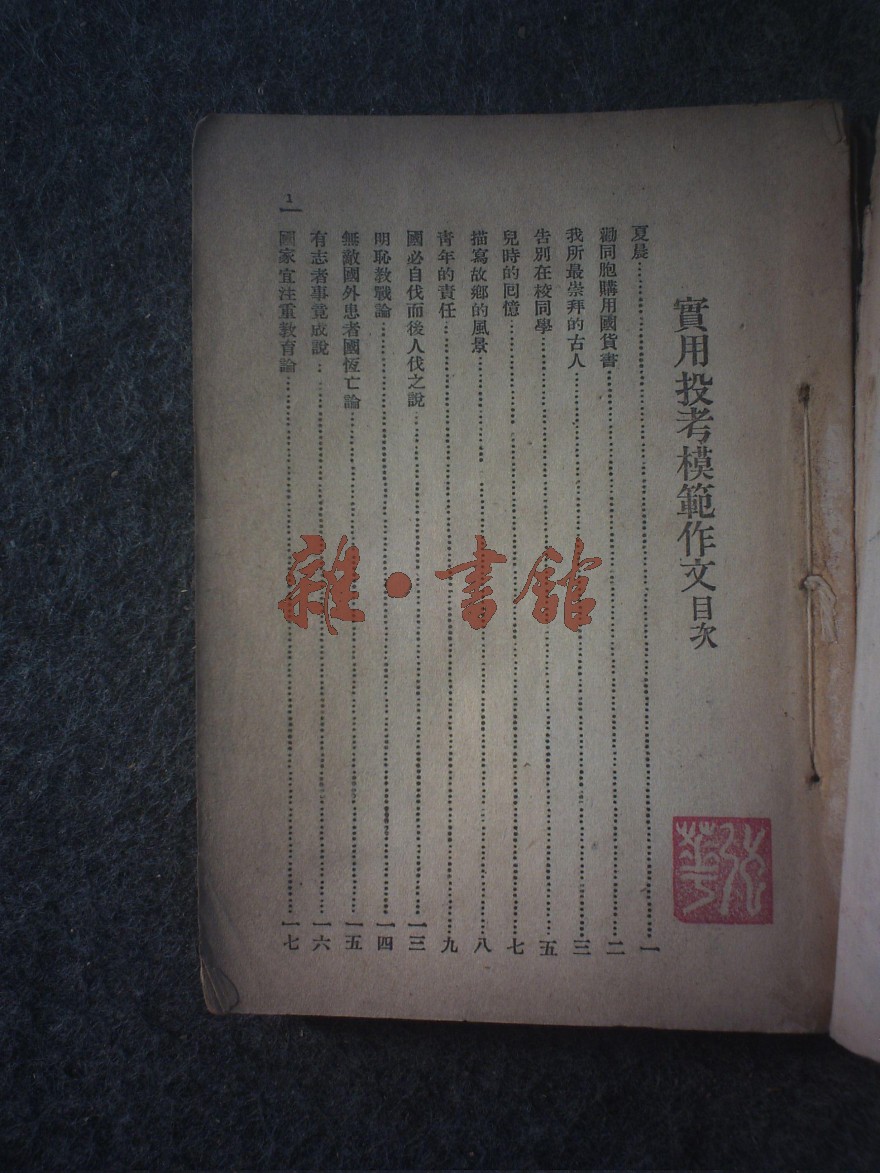 實用投考模範作文目次
夏晨……一
勸同胞購用國貨書……二
我所最崇拜的古人……三
告別在校同學……五
兒時的回憶……七
描寫故鄉的風景……八
青年的責任……九
國必自伐而後人伐之說……一三
明恥教戰論……一四
無敵國外患者國恆亡論……一五
有志者事竟成說……一六
國家宜注重教育論……一七
1
雜·書館